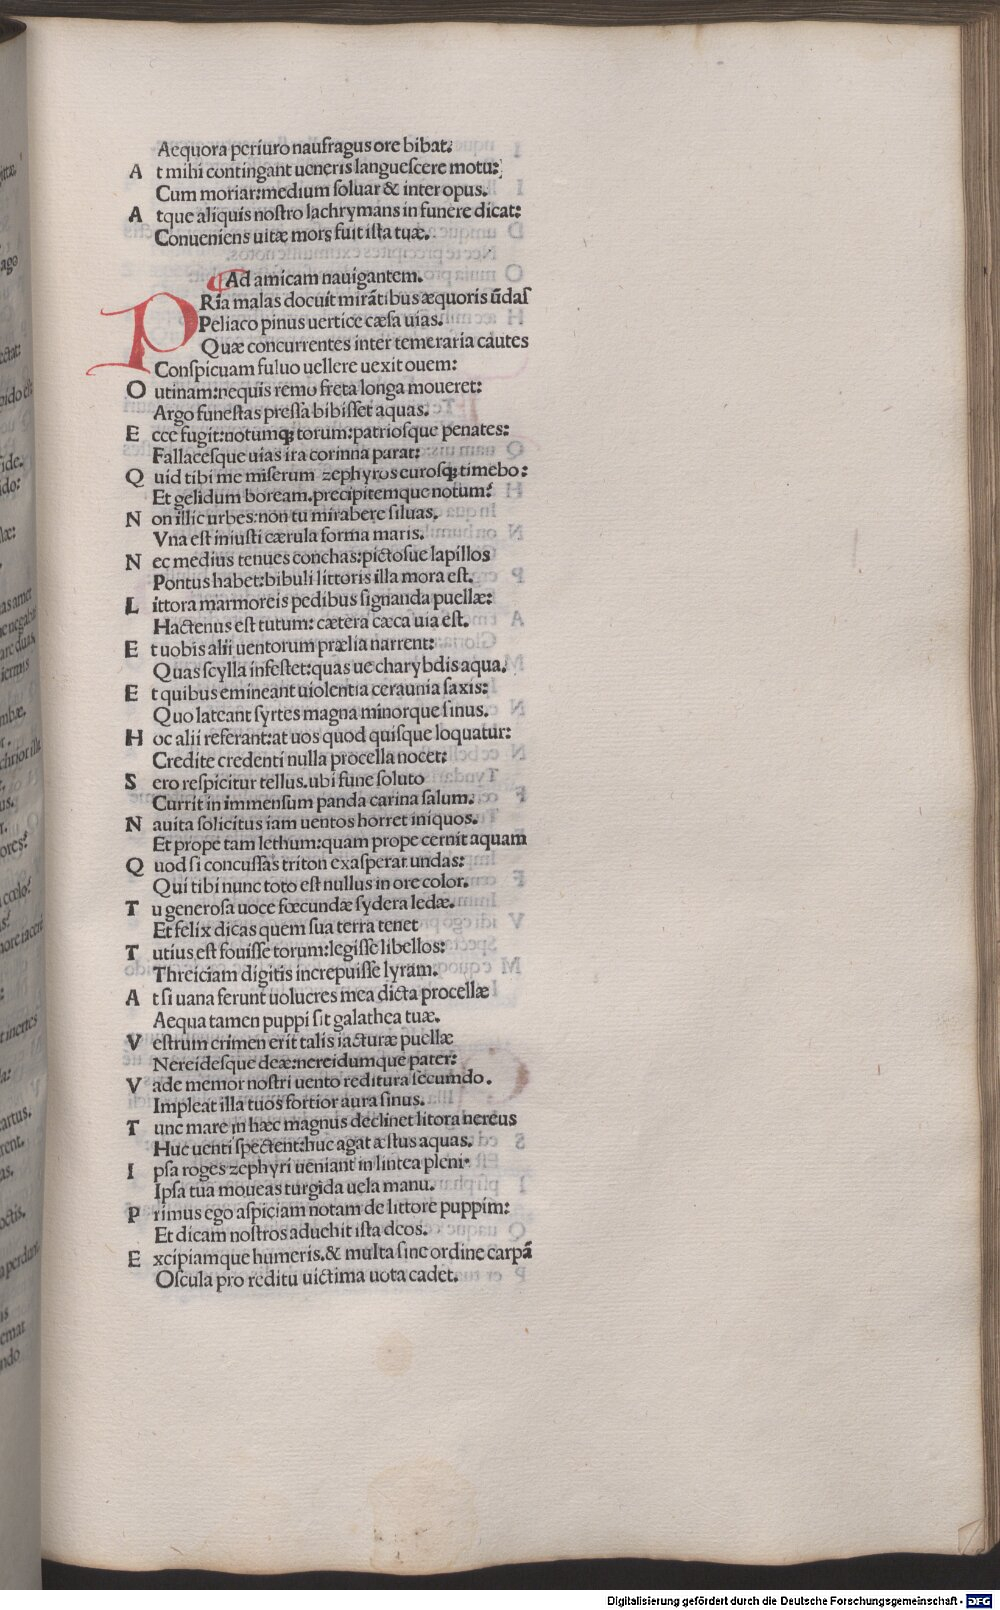 Aequora periuro naufragus ore bibat:
A t mihi contingant ueneris languescere motu:
Cum moriar: medium soluar & inter opus.
A tque aliquis nostro lachrymans in funere dicat:
Conueniens uitæ mors fuit ista tuæ.
Ad amicam nauigantem.
PRia malas docuit mirãtibus æquoris ũdas
Peliaco pinus uertice cæsa uias.
Quæ concurrentes inter temeraria cautes
Conspicuam fuluo uellere uexit ouem:
O utinam: nequis remo freta longa moueret:
Argo funestas pressa bibisset aquas.
E cce fugit: notumq; torum: patriosque penates:
Fallacesque uias ira corinna parat:
Q uid tibi me miserum zephyros eurosq; timebo:
Et gelidum boream. precipitemque notum:
N on illic urbes: non tu mirabere siluas.
Vna est iniusti cærula forma maris.
N ec medius tenues conchas: pictosue lapillos
Pontus habet: bibuli littoris illa mora est.
L ittora marmoreis pedibus signanda puellæ:
Hactenus est tutum: cætera cæca uia est.
E t uobis alii uentorum prælia narrent:
Quas scylla infestet: quas ue charybdis aqua.
E t quibus emineant uiolentia ceraunia saxis:
Quo lateant syrtes magna minorque sinus.
H oc alii referant: at uos quod quisque loquatur:
Credite credenti nulla procella nocet:
S ero respicitur tellus. ubi fune soluto
Currit in immensum panda carina salum.
N auita solicitus iam uentos horret iniquos.
Et prope tam lethum: quam prope cernit aquam
Q uod si concussas triton exasperat undas:
Qui tibi nunc toto est nullus in ore color.
T u generosa uoce fœcundæ sydera ledæ.
Et felix dicas quem sua terra tenet
T utius est fouisse torum: legisse libellos:
Threiciam digitis increpuisse lyram.
A t si uana ferunt uolucres mea dicta procellæ
Aequa tamen puppi sit galathea tuæ.
V estrum crimen erit talis iacturæ puellæ
Nereidesque deæ: nereidumque pater:
V ade memor nostri uento reditura secumdo.
Impleat illa tuos fortior aura sinus.
T unc mare in hæc magnus declinet litora nereus
Huc uenti spectent: huc agat æstus aquas.
I psa roges zephyri ueniant in lintea pleni.
Ipsa tua moueas turgida uela manu.
P rimus ego aspiciam notam de littore puppim:
Et dicam nostros aduehit ista deos.
E xcipiamque humeris. & multa sine ordine carpã
Oscula pro reditu uictima uota cadet.
Digitalisierung gefördert durch die Deutsche Forschungsgemeinschaft - DFG